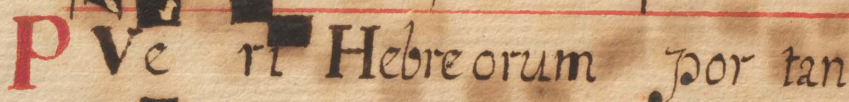 PVe ri Hebreorum por tan